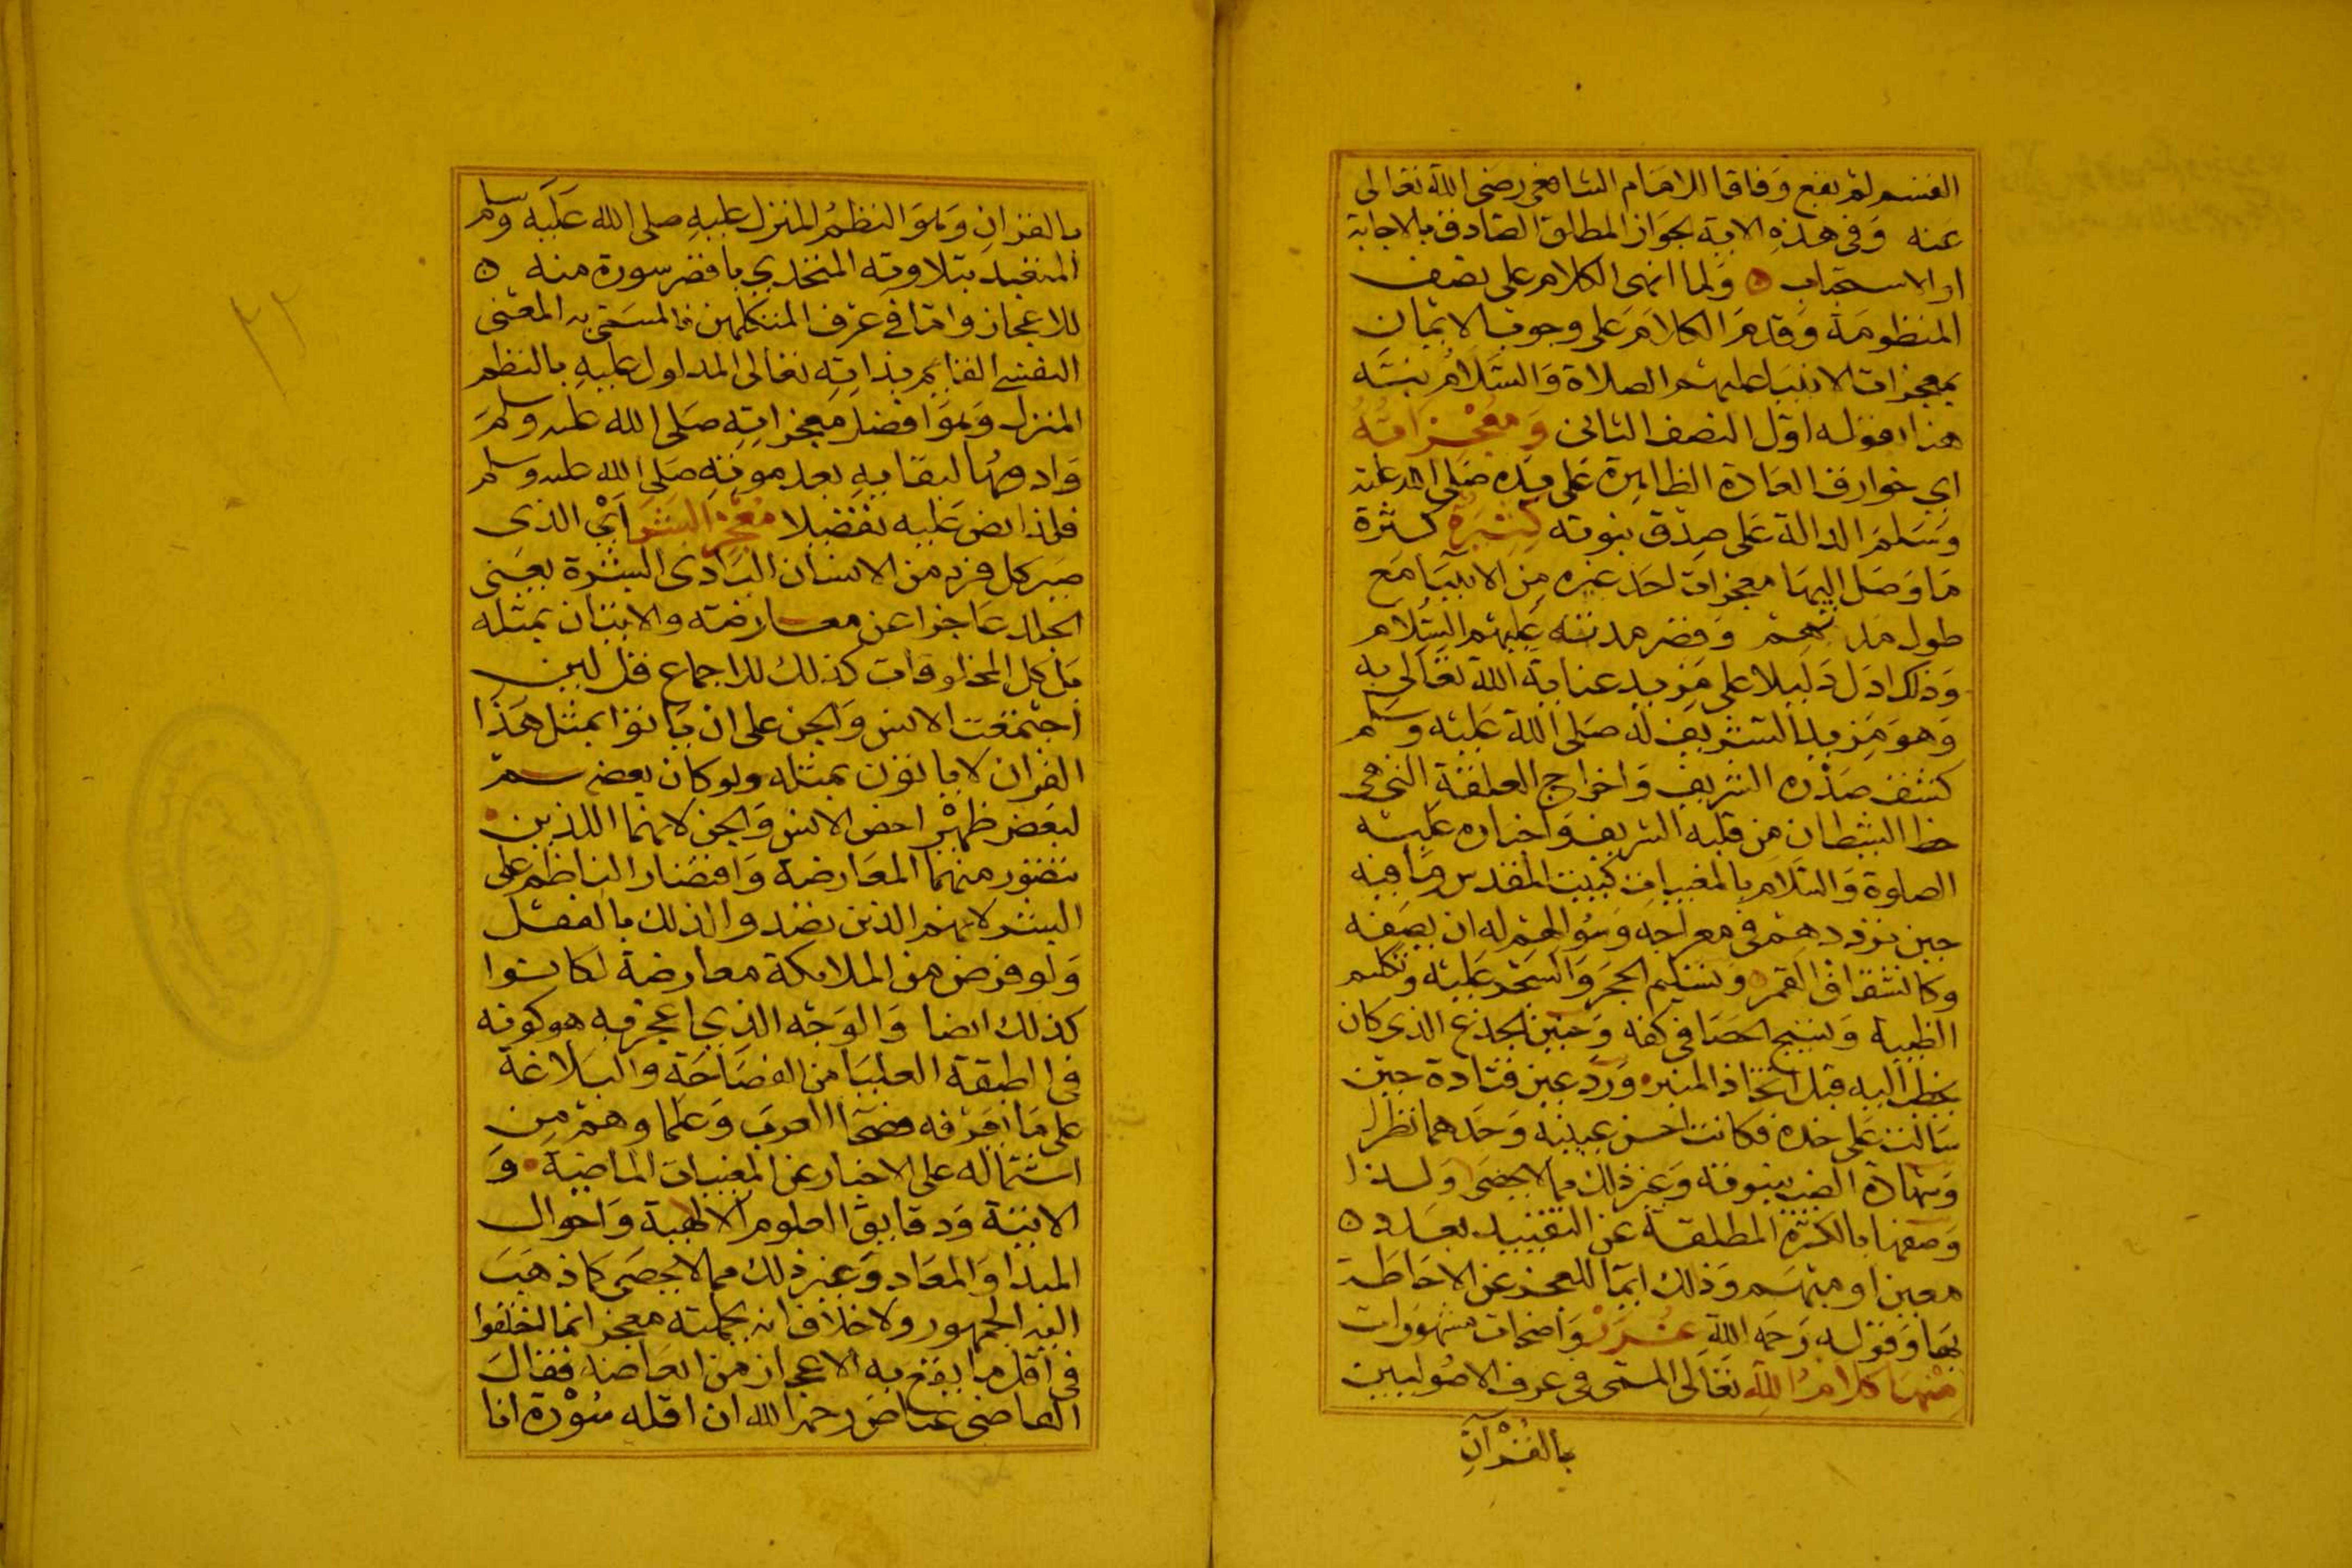 القسم لم يقع وفاقا للامام الشافعى رضى الله تعالى
عنه وفى هذه الاية لجواز المطلق الصادق بالاجابة
او الاستحباب ولما انهى الكلام على نصف
المنظومة وقدم الكلام على وجوب الايمان
بمعجزات الانبيا عليهم الصلاة والسلام
هنا بقوله اول النصف الثانى وَمُعْجِزَاتُهُ
اي خوارق العادة الظاهرة على يده صلى الله عليه
وسلم الدالة على صدق نبوته كَثِيرَةٌ كثرة
ما وصل اليها معجزات احد غيره من الانبيا مع
طول مدتهم وقصر مدته عليهم السلام
وذلك ادل دليلا على مزيد عناية الله تعالى به
وهو مزيد التشريف له صلى الله عليه وسلم
كشق صدره الشريف واخراج العلقة التى هى
حظ الشيطان من قلبه الشريف واخباره عليه
الصلوة والسلام بالمغيبات كبيت المقدس وما فيه
حين ترددهم فى معراجه وسؤالهم له ان يصفه
وكانشقاق القمر وتسليم الحجر والشجر عليه وتكليم
الظبية وتسبيح الحصا فى كفه وحنين الجذع الذى كان
يخطب اليه قبل اتخاذ المنبر ورد عين قتادة حين
سالت على خده فكانت احسن عينيه وحدهما نظرا
وشهادة الضب بنبوته وغير ذلك مما لا يحصى ولذا
وصفها بالكثرة المطلقة عن التقييد بعدد
معين او مبهم وذلك ايما للعجز عن الاحاطة
بها وقوله رحمه الله غُرَرْ واضحات مشهورات
مِنْهَا كَلَامُ اللهِ تعالى المسمى فى عرف الاصوليين
بالقُرْآنِ
بالقران وهو النظم المنزل عليه صلى الله عليه وسلم
المتعبد بتلاوته المتحدي باقصر سورة منه
للاعجاز واما في عرف المتكلمين فالمسمى به المعنى
النفسي القايم بذاته تعالى المدلول عليه بالنظم
المنزل وهو افضل معجزاته صلى الله عليه وسلم
وادومها لبقايه بعد موته صلى الله عليه وسلم
فلذا نص عليه تفضيلا مُعْجِزُ الْبَشَرْ ايْ الذى
صير كل فرد من الانسان البادى البشرة يعنى
الجلد عاجزا عن معارضته والاتيان بمثله
بل كل المخلوقات كذلك للاجماع قل لين
اجتمعت الانس والجن على ان ياتوا بمثل هذا
القران لا ياتون بمثله ولو كان بعضهم
لبعض ظهيرا خص الانس والجن لانهما اللذين
تتصور منهما المعارضة واقتصار الناظم على
البشر لانهم الذين تصدوا لذلك بالفعل
ولو فرض من الملايكة معارضة لكانوا
كذلك ايضا والوجه الذي اعجز به هو كونه
فى الطبقة العليا من الفصاحة والبلاغة
على ما يعرفه فصحا العرب وعلماوهم من
اشتماله على الاخبار عن المغيبات الماضية و
الاتية ودقايق العلوم الالهية واحوال
المبدا والمعاد وغير ذلك مما لا يحصى كما ذهب
اليه الجمهور ولا خلاف انه بجملته معجز انما اختلفوا
فى اقل ما يقع به الاعجاز من ابعاضه فقال
القاضى عياض رحمه الله ان اقله سورة انا